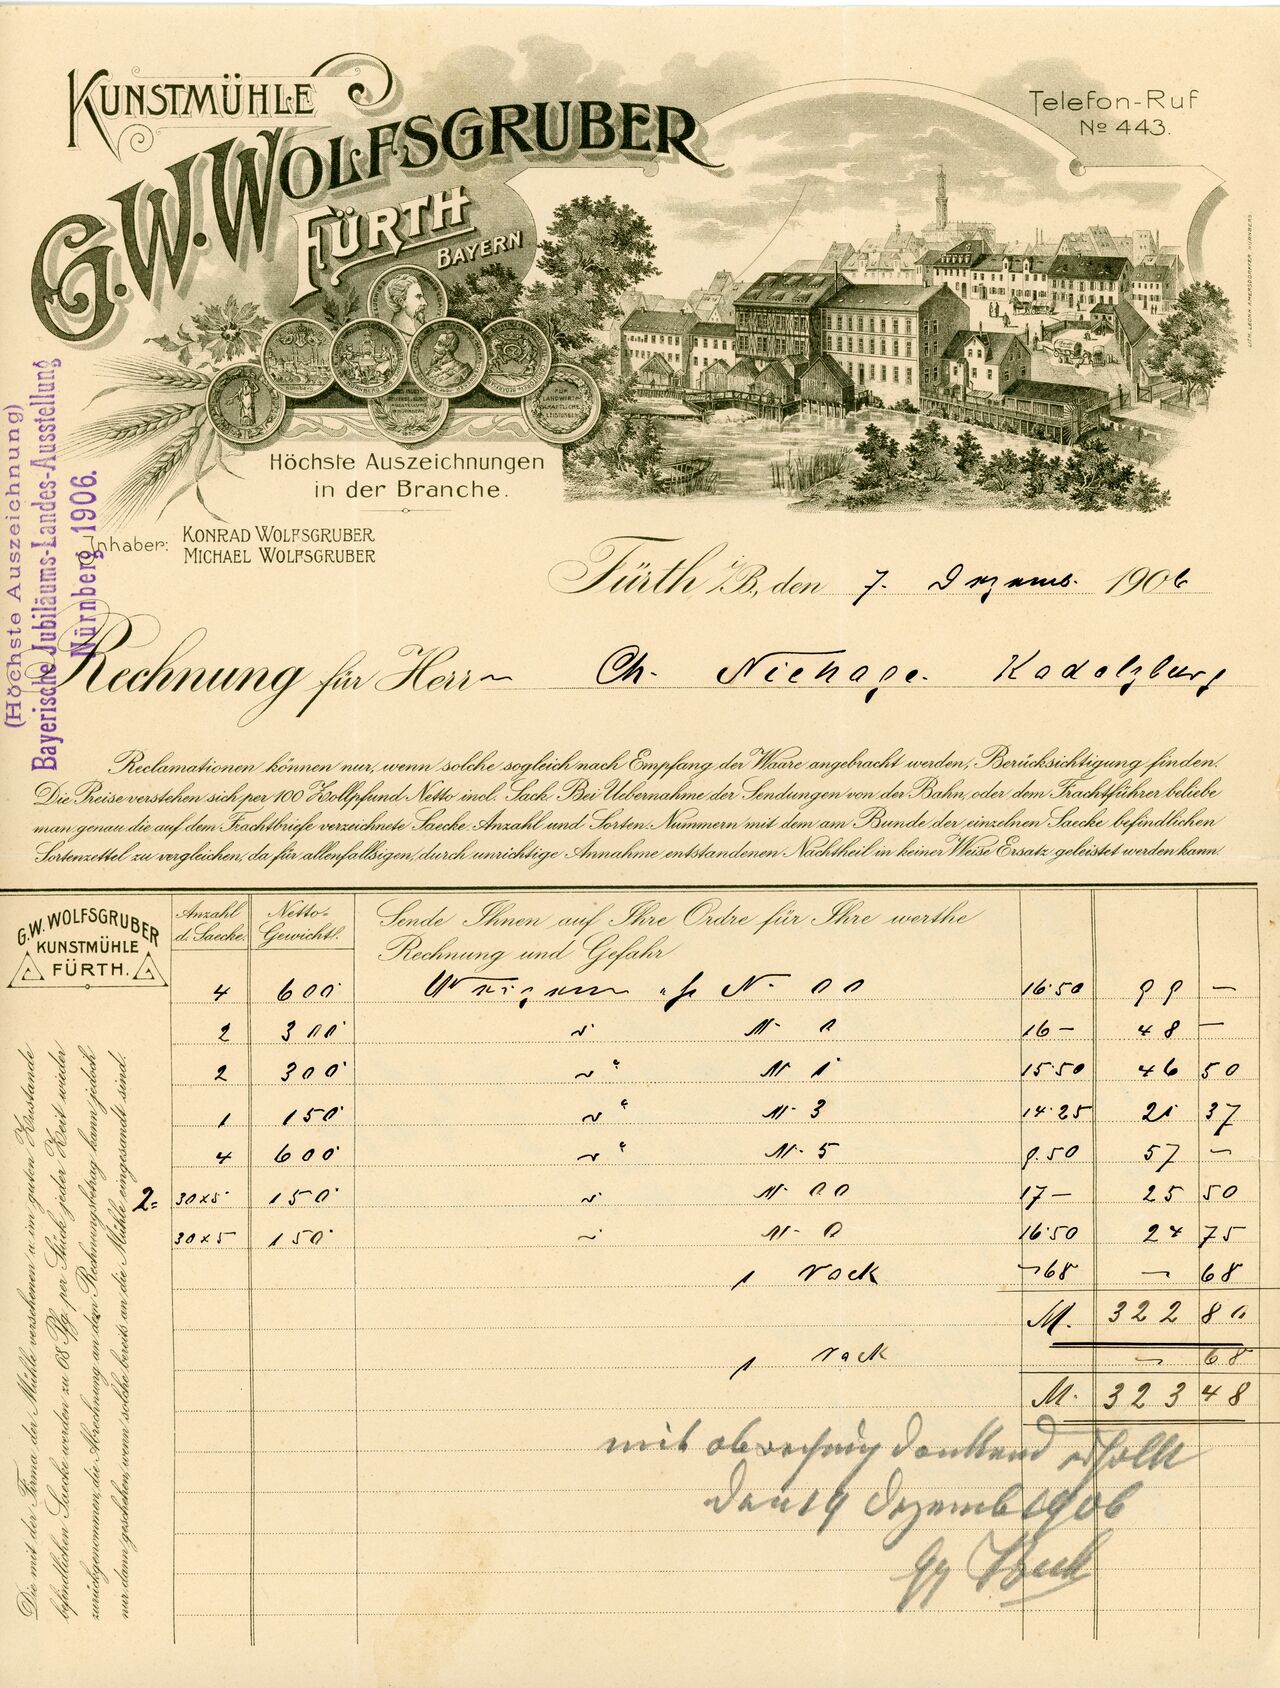 KUNSTMÜHLE
G. W. WOLFSGRUBER
FÜRTH
BAYERN
Telefon-Ruf
No 443.
LANDWIRTH-
SCHAFTLICHE
LEISTUNGEN
Höchste Auszeichnungen
in der Branche.
(Höchste Auszeichnung)
Bayerische Jubiläums-Landes-Ausstellung
Nürnberg 1906.
Inhaber: KONRAD WOLFSGRUBER
MICHAEL WOLFSGRUBER
Fürth i/B, den 7. Dezemb. 1906
Rechnung für Herrn Ch. Niehage. Kadolzburg
Reclamationen können nur, wenn solche sogleich nach Empfang der Waare angebracht werden, Berücksichtigung finden.
Die Preise verstehen sich per 100 Zollpfund Netto incl. Sack. Bei Uebernahme der Sendungen von der Bahn, oder dem Frachtführer beliebe
man genau die auf dem Frachtbriefe verzeichnete Saecke-Anzahl und Sorten-Nummern mit dem am Bunde der einzelnen Saecke befindlichen
Sortenzettel zu vergleichen, da für allenfallsigen, durch unrichtige Annahme entstandenen Nachtheil in keiner Weise Ersatz geleistet werden kann.
G. W. WOLFSGRUBER
KUNSTMÜHLE
FÜRTH.
Anzahl d. Saecke. Netto-Gewicht. Sende Ihnen auf Ihre Ordre für Ihre werthe
Rechnung und Gefahr
4 600 N. 00 16.50 99 —
2 300 " N. 0 16 — 48 —
2 300 " N. 1 15.50 46 50
1 150 " N. 3 14.25 21 37
4 600 " N. 5 9.50 57 —
2= 30x5 150 " N. 00 17 — 25 50
30x5 150 " N. 0 16.50 24 75
1 Sack —68 — 68
M. 322 80
1 Sack — 68
M. 323 48
dankend erhalten
den 19 Dezemb 1906
Die mit der Firma der Mühle versehenen u. im guten Zustande
befindlichen Saecke werden zu 68 Pfg. per Stück jeder Zeit wieder
zurückgenommen, die Abrechnung an dem Rechnungsbetrag kann jedoch
nur dann geschehen, wenn solche bereits an die Mühle eingesandt sind.